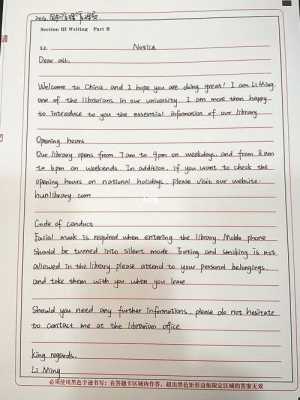 Section III Writing Part B
52.
Notice
Dear all,
Welcome to China and I hope you are doing great! I am Li Ming,
one of the librarians in our university. I am more than happy
to introduce to you the essential information of our library.
Opening hours
Our library opens from 7am to 9pm on weekdays, and from 8am
to 6pm on weekends. In addition, if you want to check the
opening hours on national holidays, please visit our website
hunlibrary.com
Code of conduct
Facial mask is required when entering the library. Mobile phone
should be turned into silent mode. Eating and smoking is not
allowed in the library. please attend to your personal belongings
and take them with you when you leave.
Should you need any further informations, please do not hesitate
to contact me at the librarian office.
King regards,
Li Ming
必须使用黑色字迹书写;在答题卡区域内作答,超出黑色矩形边框限定区域的答案无效